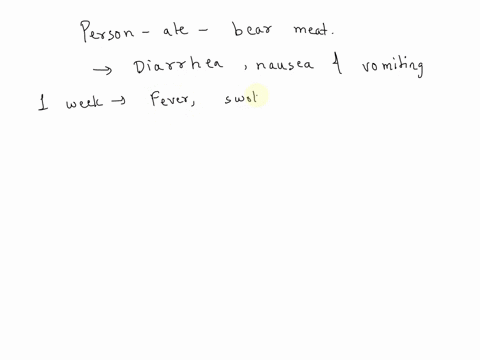 Person - ate - bear meat.
→ Diarrhea, nausea & vomiting
1 week → Fever, swol